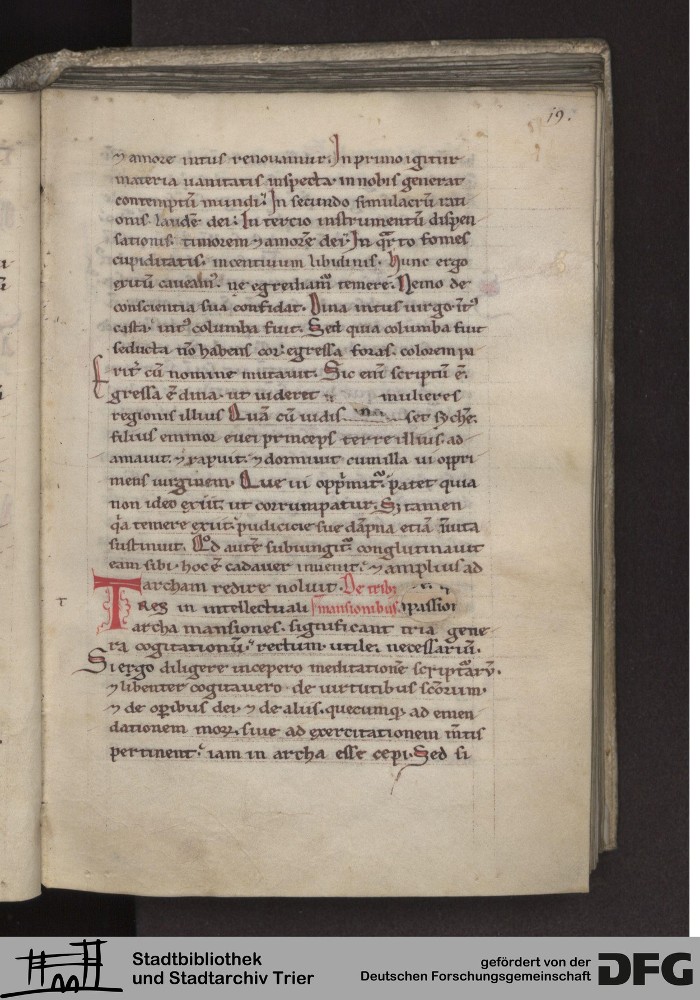 19.
⁊ amore intus renouamur. In primo igitur
materia uanitatis inspecta in nobis generat
contemptū mundi. In secundo simulacrū rati
onis laudē dei. In tercio instrumentū dispen
sationis timorem ⁊ amorē dei. In q̄rto fomes
cupiditatis. incentiuum libidinis. Hunc ergo
exitū caueam᷒. ne egrediam̄ temere. Nemo de
conscientia sua confidat. Dina intus uirgo
casta. int᷒ columba fuit. Sed quia columba fuit
seducta nō habens cor. egressa foras. colorem pa
rit cū nomine mutauit. Sic enī scriptū ē.
gressa ē dina. ut uideret mulieres
regionis illius Quā cū uidis set sychē.
filius emmor euei princeps terre illius. ad
amauit. ⁊ rapuit. ⁊ dormiuit cum illa ui oppri
mens uirginem. Que ui opp̄mit᷑. patet quia
non ideo exiit. ut corrumpatur. Sꝫ tamen
q̄a temere exiit. pudicicie sue dāpna etiā inuita
sustinuit. Qd autē subiungit᷑ conglutinauit
eam sibi. hoc ē cadauer inuenit. ⁊ amplius ad
archam redire noluit. De trib᷒
TRes in intellectuali mansionibus.
archa mansiones. significant tria gene
ra cogitationū. rectum. utile. necessariū.
Si ergo diligere incepero meditationē scripturarꝝ.
⁊ libenter cogitauero de uirtutibus scōrum.
⁊ de oꝑibus dei. ⁊ de aliis. quecumqꝫ ad emen
dationem morꝝ. siue ad exercitationem m̄tis
pertinent. iam in archa esse cepi. Sed si
Stadtbibliothek
und Stadtarchiv Trier
gefördert von der
Deutschen Forschungsgemeinschaft
DFG